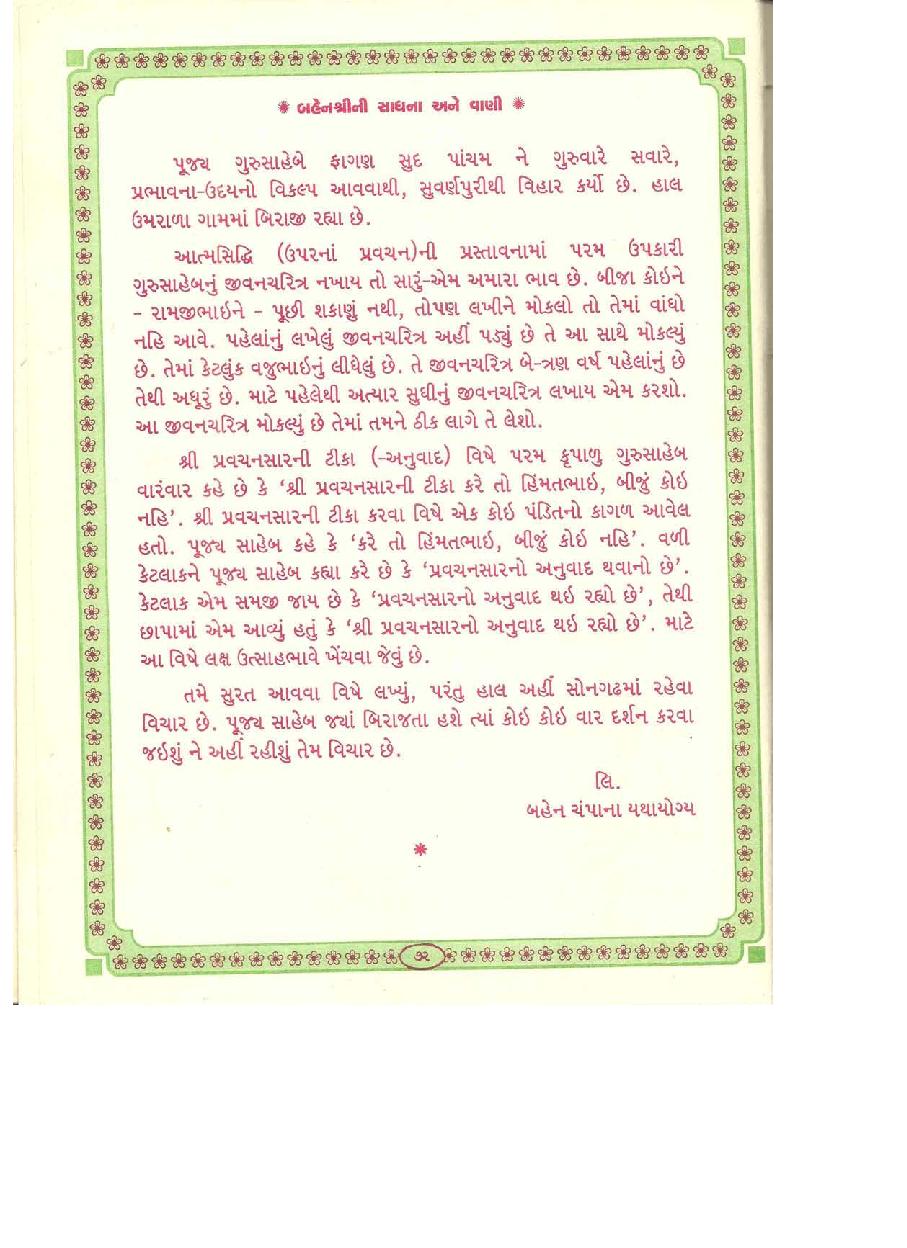 ✷ બહેનશ્રીની સાધના અને વાણી ✷
પૂજ્ય ગુરુસાહેબે ફાગણ સુદ પાંચમ ને ગુરુવારે સવારે,
પ્રભાવના-ઉદયનો વિકલ્પ આવવાથી, સુવર્ણપુરીથી વિહાર કર્યો છે. હાલ
ઉમરાળા ગામમાં બિરાજી રહ્યા છે.
આત્મસિદ્ધિ (ઉપરનાં પ્રવચન)ની પ્રસ્તાવનામાં પરમ ઉપકારી
ગુરુસાહેબનું જીવનચરિત્ર નખાય તો સારું-એમ અમારા ભાવ છે. બીજા કોઇને
- રામજીભાઇને - પૂછી શકાણું નથી, તોપણ લખીને મોકલો તો તેમાં વાંધો
નહિ આવે. પહેલાંનું લખેલું જીવનચરિત્ર અહીં પડ્યું છે તે આ સાથે મોકલ્યું
છે. તેમાં કેટલુંક વજુભાઇનું લીધેલું છે. તે જીવનચરિત્ર બે-ત્રણ વર્ષ પહેલાંનું છે
તેથી અધૂરું છે. માટે પહેલેથી અત્યાર સુધીનું જીવનચરિત્ર લખાય એમ કરશો.
આ જીવનચરિત્ર મોકલ્યું છે તેમાં તમને ઠીક લાગે તે લેશો.
શ્રી પ્રવચનસારની ટીકા (-અનુવાદ) વિષે પરમ કૃપાળુ ગુરુસાહેબ
વારંવાર કહે છે કે ‘શ્રી પ્રવચનસારની ટીકા કરે તો હિંમતભાઇ, બીજું કોઇ
નહિ’. શ્રી પ્રવચનસારની ટીકા કરવા વિષે એક કોઇ પંડિતનો કાગળ આવેલ
હતો. પૂજ્ય સાહેબ કહે કે ‘કરે તો હિંમતભાઇ, બીજું કોઇ નહિ’. વળી
કેટલાકને પૂજ્ય સાહેબ કહ્યા કરે છે કે ‘પ્રવચનસારનો અનુવાદ થવાનો છે’.
કેટલાક એમ સમજી જાય છે કે ‘પ્રવચનસારનો અનુવાદ થઇ રહ્યો છે’, તેથી
છાપામાં એમ આવ્યું હતું કે ‘શ્રી પ્રવચનસારનો અનુવાદ થઇ રહ્યો છે’. માટે
આ વિષે લક્ષ ઉત્સાહભાવે ખેંચવા જેવું છે.
તમે સુરત આવવા વિષે લખ્યું, પરંતુ હાલ અહીં સોનગઢમાં રહેવા
વિચાર છે. પૂજ્ય સાહેબ જ્યાં બિરાજતા હશે ત્યાં કોઇ કોઇ વાર દર્શન કરવા
જઇશું ને અહીં રહીશું તેમ વિચાર છે.
લિ.
બહેન ચંપાના યથાયોગ્ય
✷
૭૨